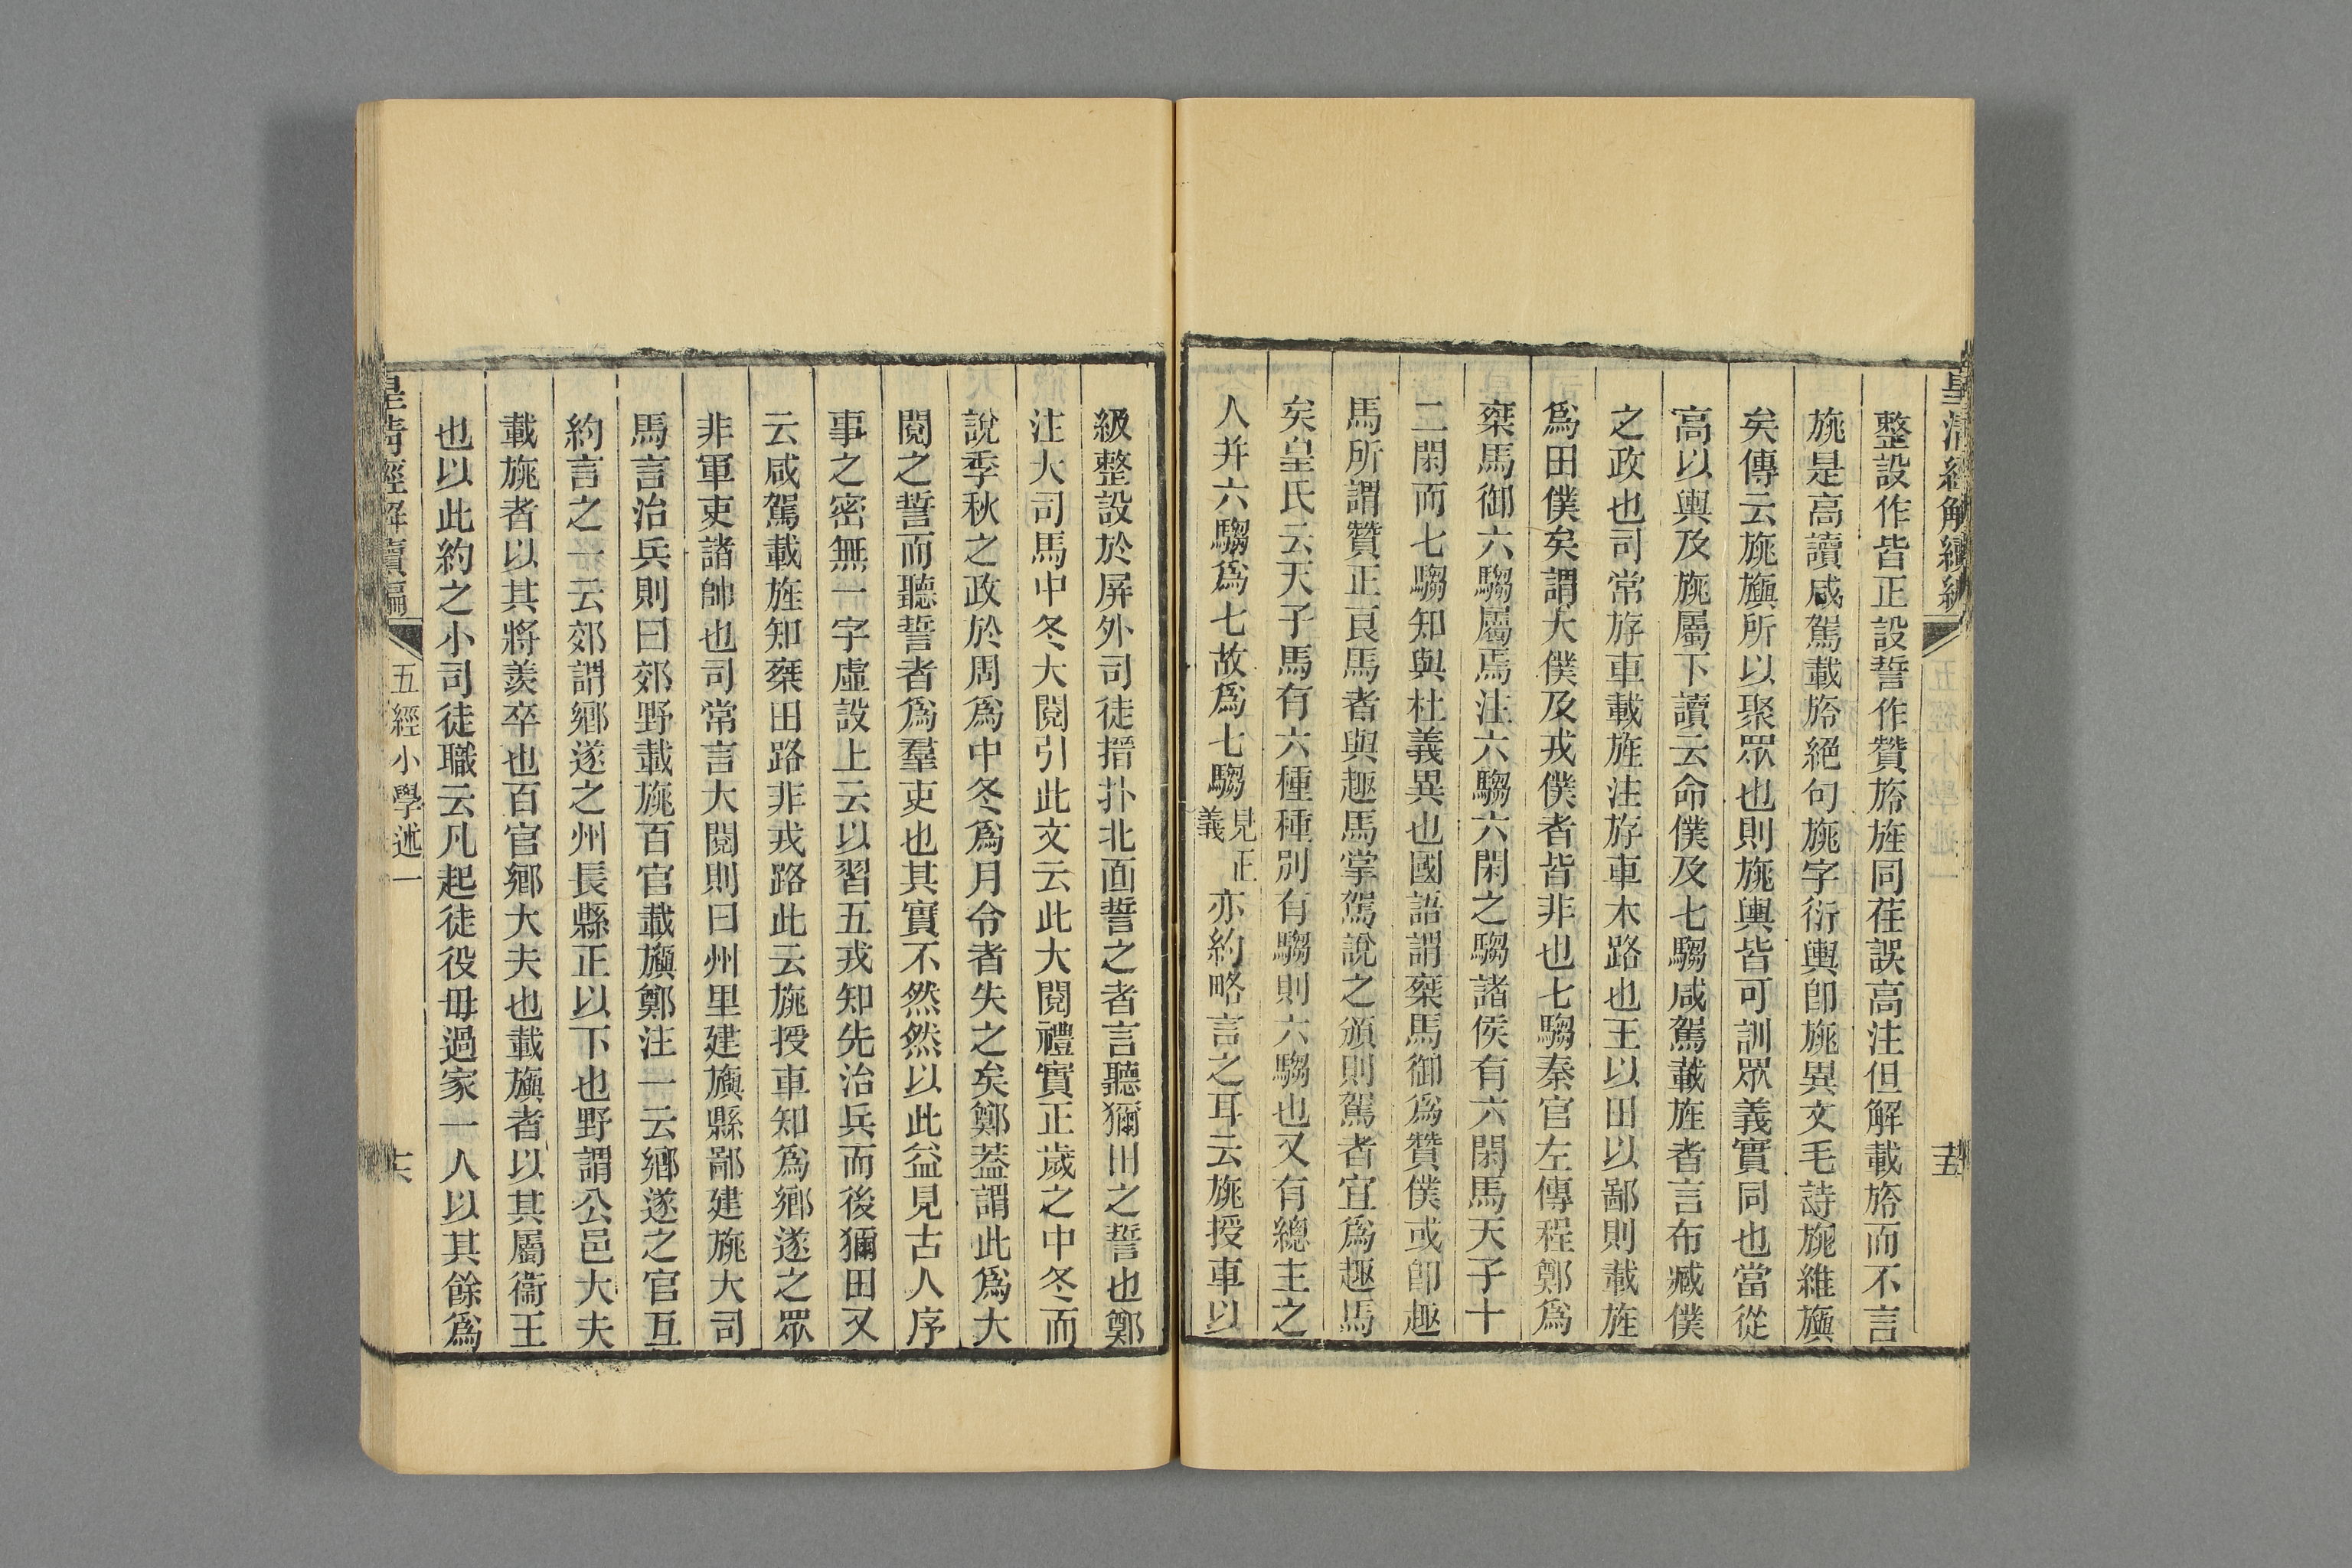 皇清經解續編
五經小學述一
整設作皆正設誓作贊旍旌同荏誤高注但解載旍而不言
旐是高讀咸駕載旍絕句旐字衍輿卽旐異文毛詩旐維旟
矣傳云旐旟所以聚眾也則旐輿皆可訓眾義實同也當從
高以輿及旐屬下讀云命僕及七騶咸駕載旌者言布臧僕
之政也司常斿車載旌注斿車木路也王以田以鄙則載旌
爲田僕矣謂大僕及戎僕者皆非也七騶秦官左傳程鄭爲
椉馬御六騶屬焉注六騶六閑之騶諸侯有六閑馬天子十
二閑而七騶知與杜義異也國語謂椉馬御爲贊僕或卽趣
馬所謂贊正良馬者與趣馬掌駕說之頒則駕者宜爲趣馬
矣皇氏云天子馬有六種種別有騶則六騶也又有總主之
人并六騶爲七故爲七騶見正義亦約略言之耳云旐授車以
級整設於屏外司徒搢扑北面誓之者言聽獮田之誓也鄭
注大司馬中冬大閱引此文云此大閱禮實正歲之中冬而
說季秋之政於周爲中冬爲月令者失之矣鄭葢謂此爲大
閱之誓而聽誓者爲羣吏也其實不然然以此益見古人序
事之密無一字虛設上云以習五戎知先治兵而後獮田又
云咸駕載旌知椉田路非戎路此云旐授車知爲鄉遂之眾
非軍吏諸帥也司常言大閱則曰州里建旟縣鄙建旐大司
馬言治兵則曰郊野載旐百官載旟鄭注一云鄉遂之官互
約言之一云郊謂鄉遂之州長縣正以下也野謂公邑大夫
載旐者以其將羨卒也百官鄉大夫也載旟者以其屬衞王
也以此約之小司徒職云凡起徒役毋過家一人以其餘爲
皇清經解續編
五經小學述一